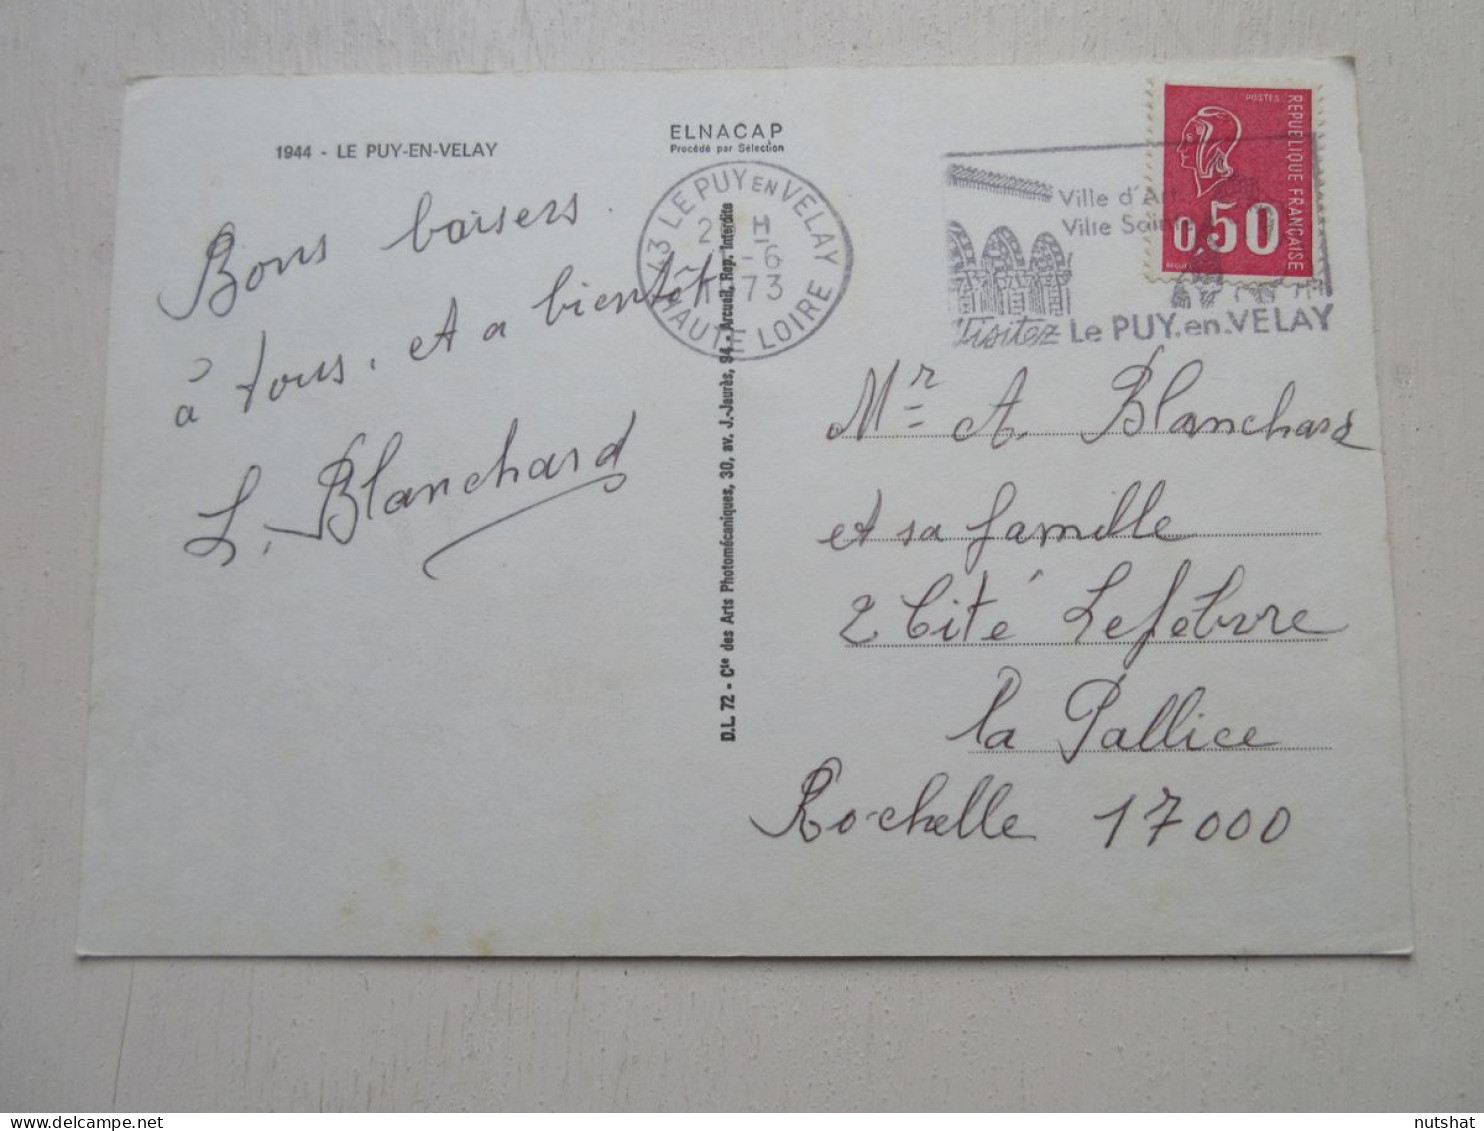 1944 - LE PUY-EN-VELAY
ELNACAP
Procédé par Sélection
Bons baisers
à tous. et a bientôt
L. Blanchard
43 LE PUY EN VELAY
HAUTE LOIRE
-6
73
D.L. 72 - Cie des Arts Photomécaniques, 30, av. J.-Jaurès, 94 - Arcueil, Rep. Interdite
Ville d'Art
Ville Sainte
Visitez Le PUY.en.VELAY
POSTES
REPUBLIQUE FRANÇAISE
0,50
Mr A. Blanchard
et sa famille
2 Cité Lefebvre
la Pallice
Rochelle 17000
nutshat
delcampe.net